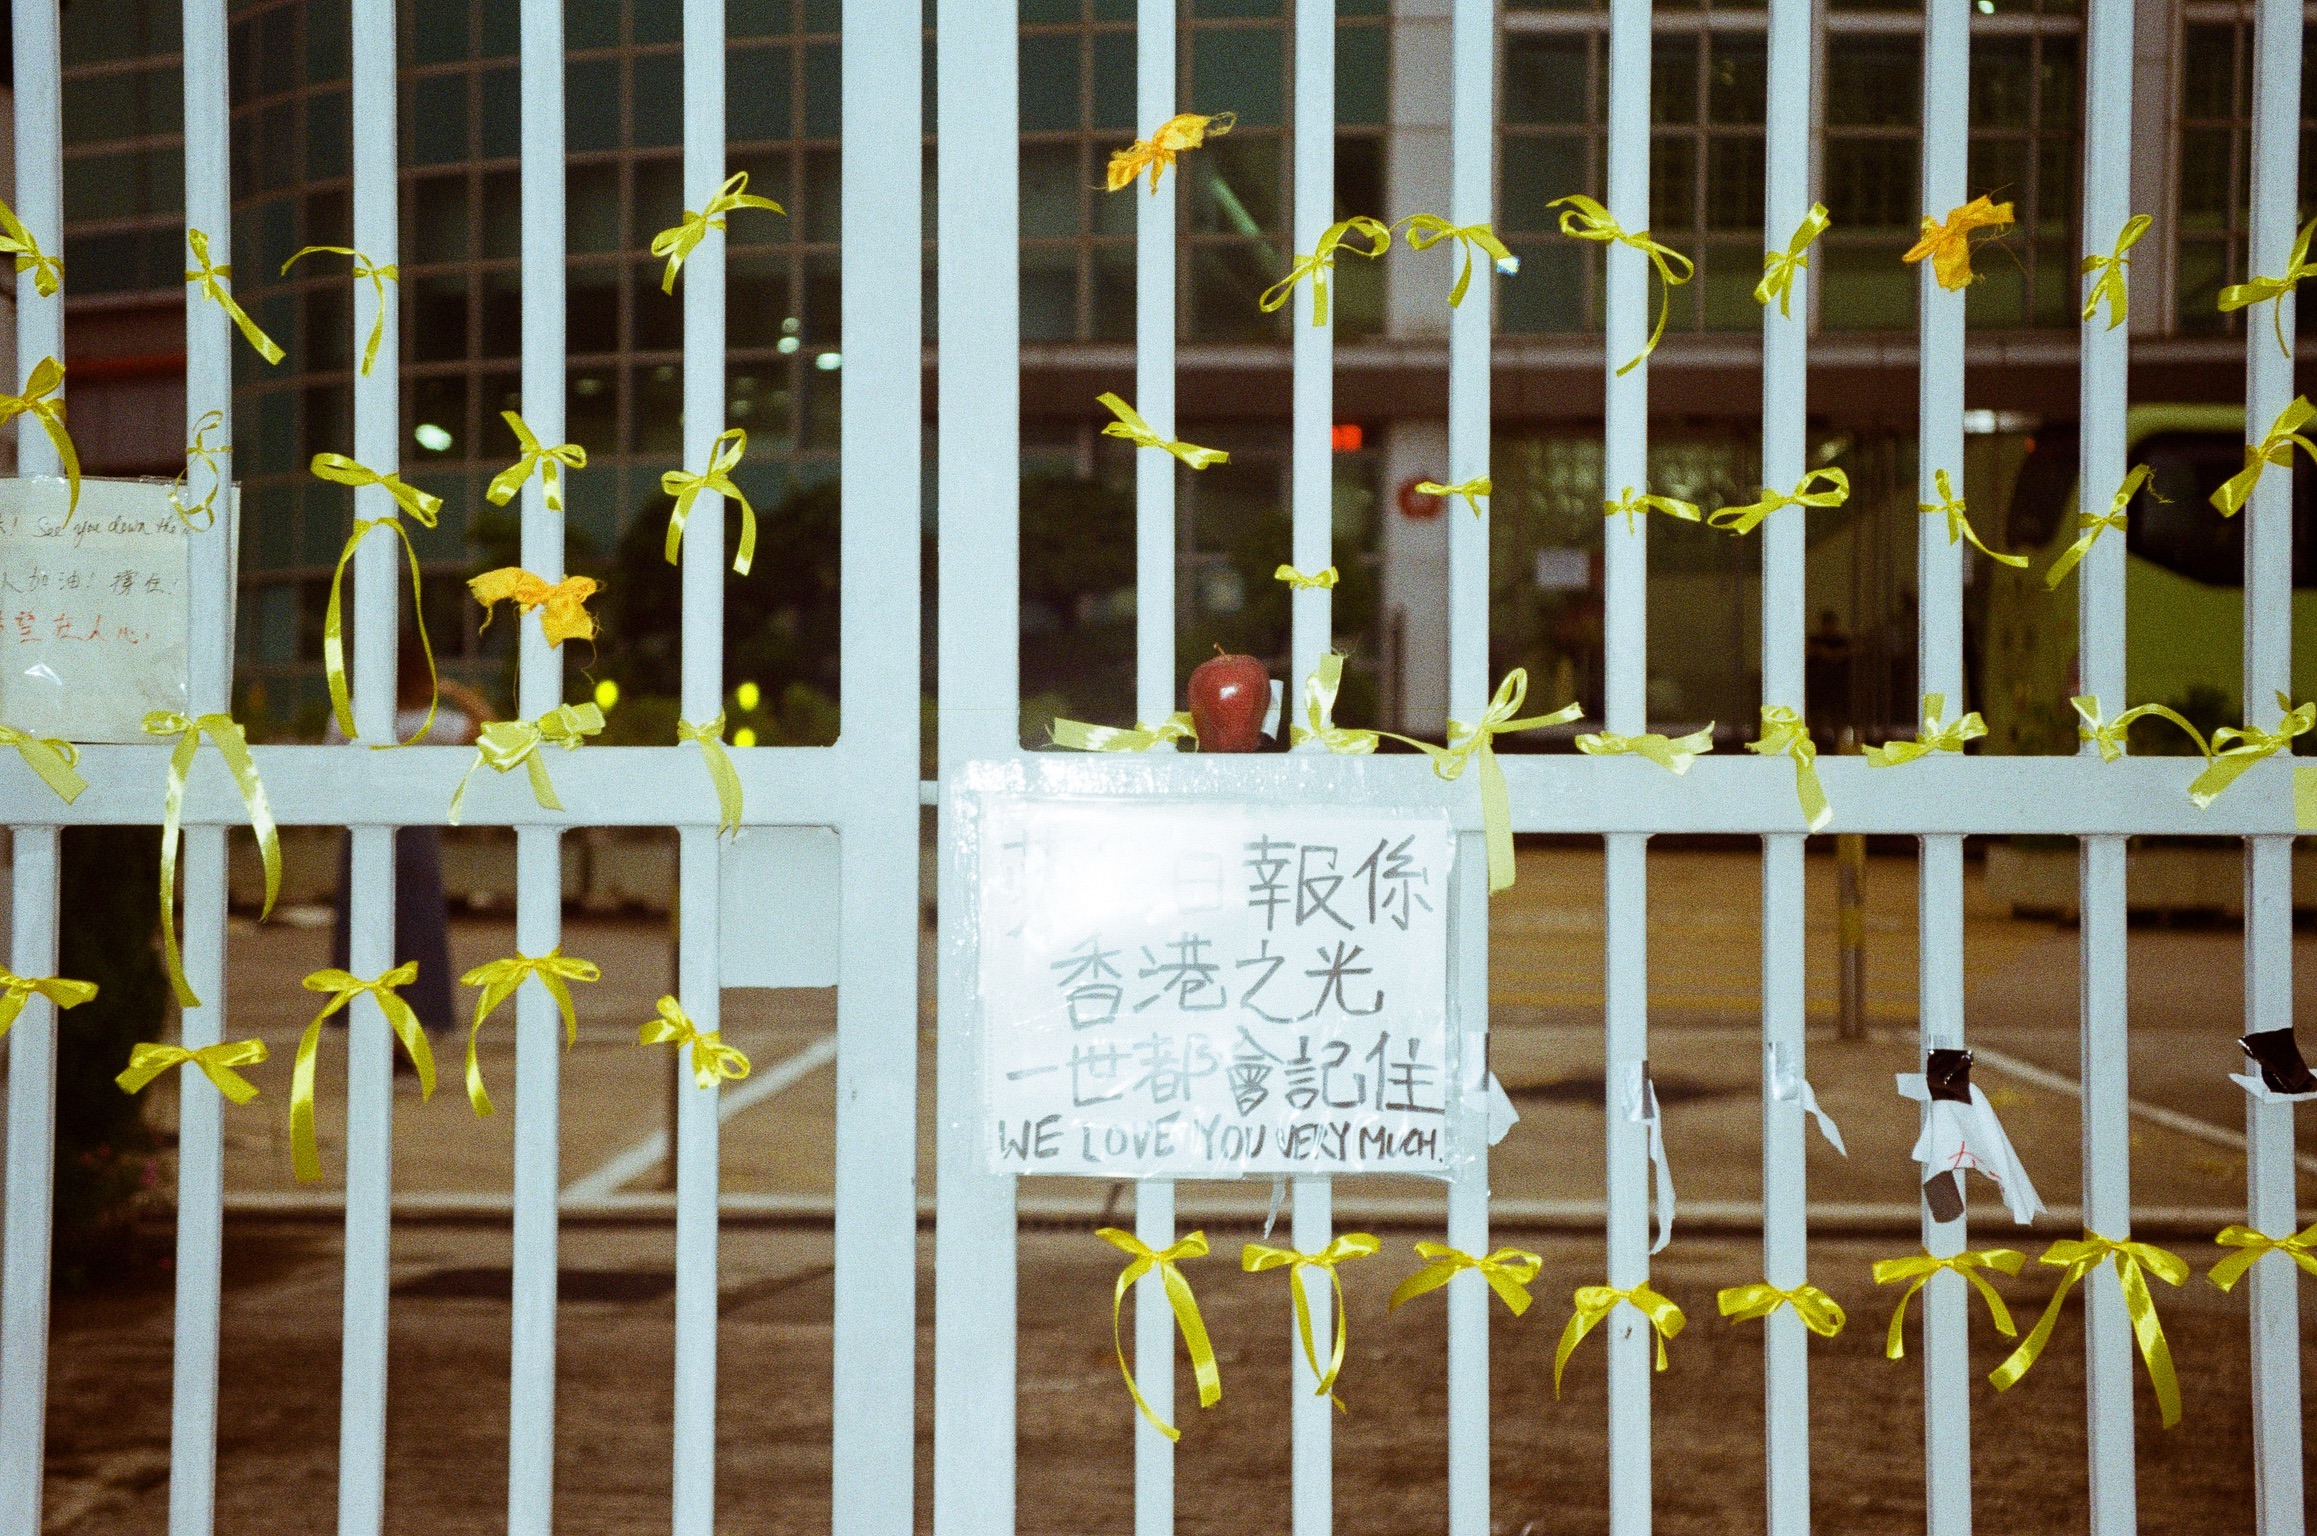 ! See you down the
人加油！撐住！
望在人心。
日報係
香港之光
一世都會記住
WE LOVE YOU VERY MUCH.